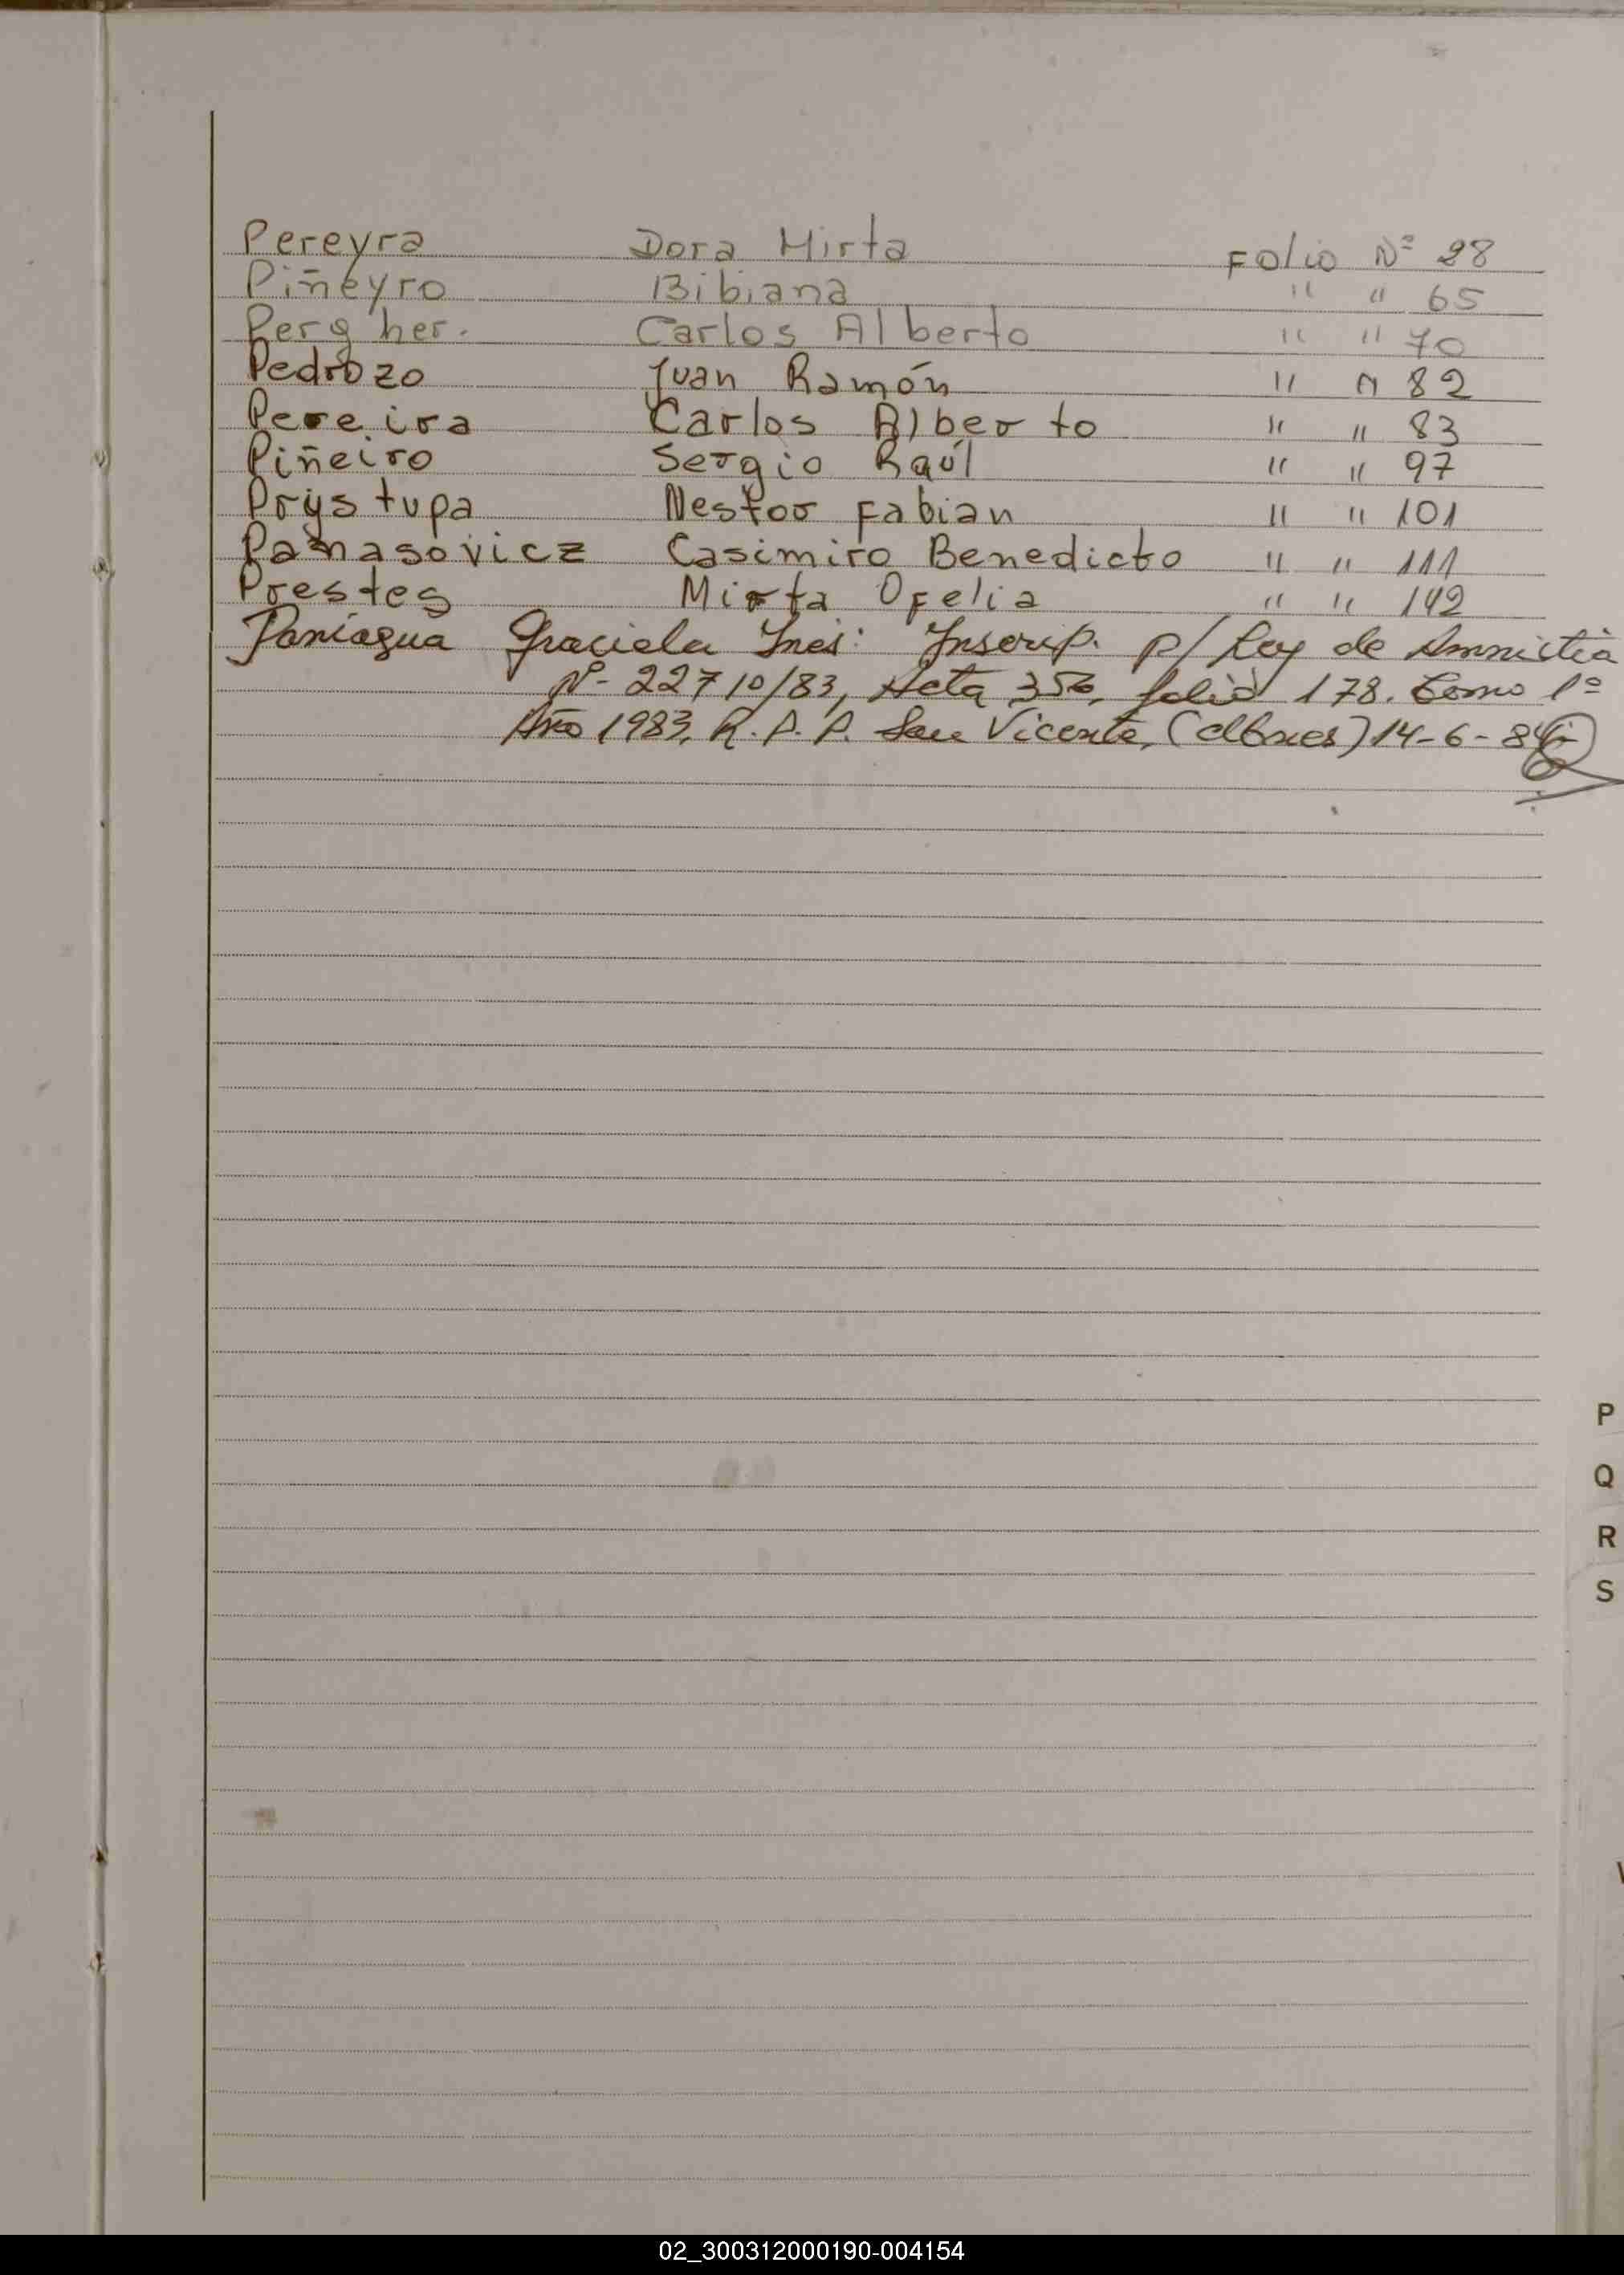 Pereyra Dora Mirta Folio Nº 28
Piñeyro Bibiana " " 65
Pergher. Carlos Alberto " " 70
Pedrozo Juan Ramón " " 82
Pereira Carlos Alberto " " 83
Piñeiro Sergio Raúl " " 97
Prystupa Nestor Fabian " " 101
Panasovicz Casimiro Benedicto " " 111
Prestes Mirta Ofelia " " 142
Paniagua Graciela Inés: Inscrip. p/ Ley de Amnistia
Nº- 22710/83, Acta 356, folio 178. Tomo 1º
Año 1983, R.P.P. San Vicente, 14-6-84
P
Q
R
S
02_300312000190-004154